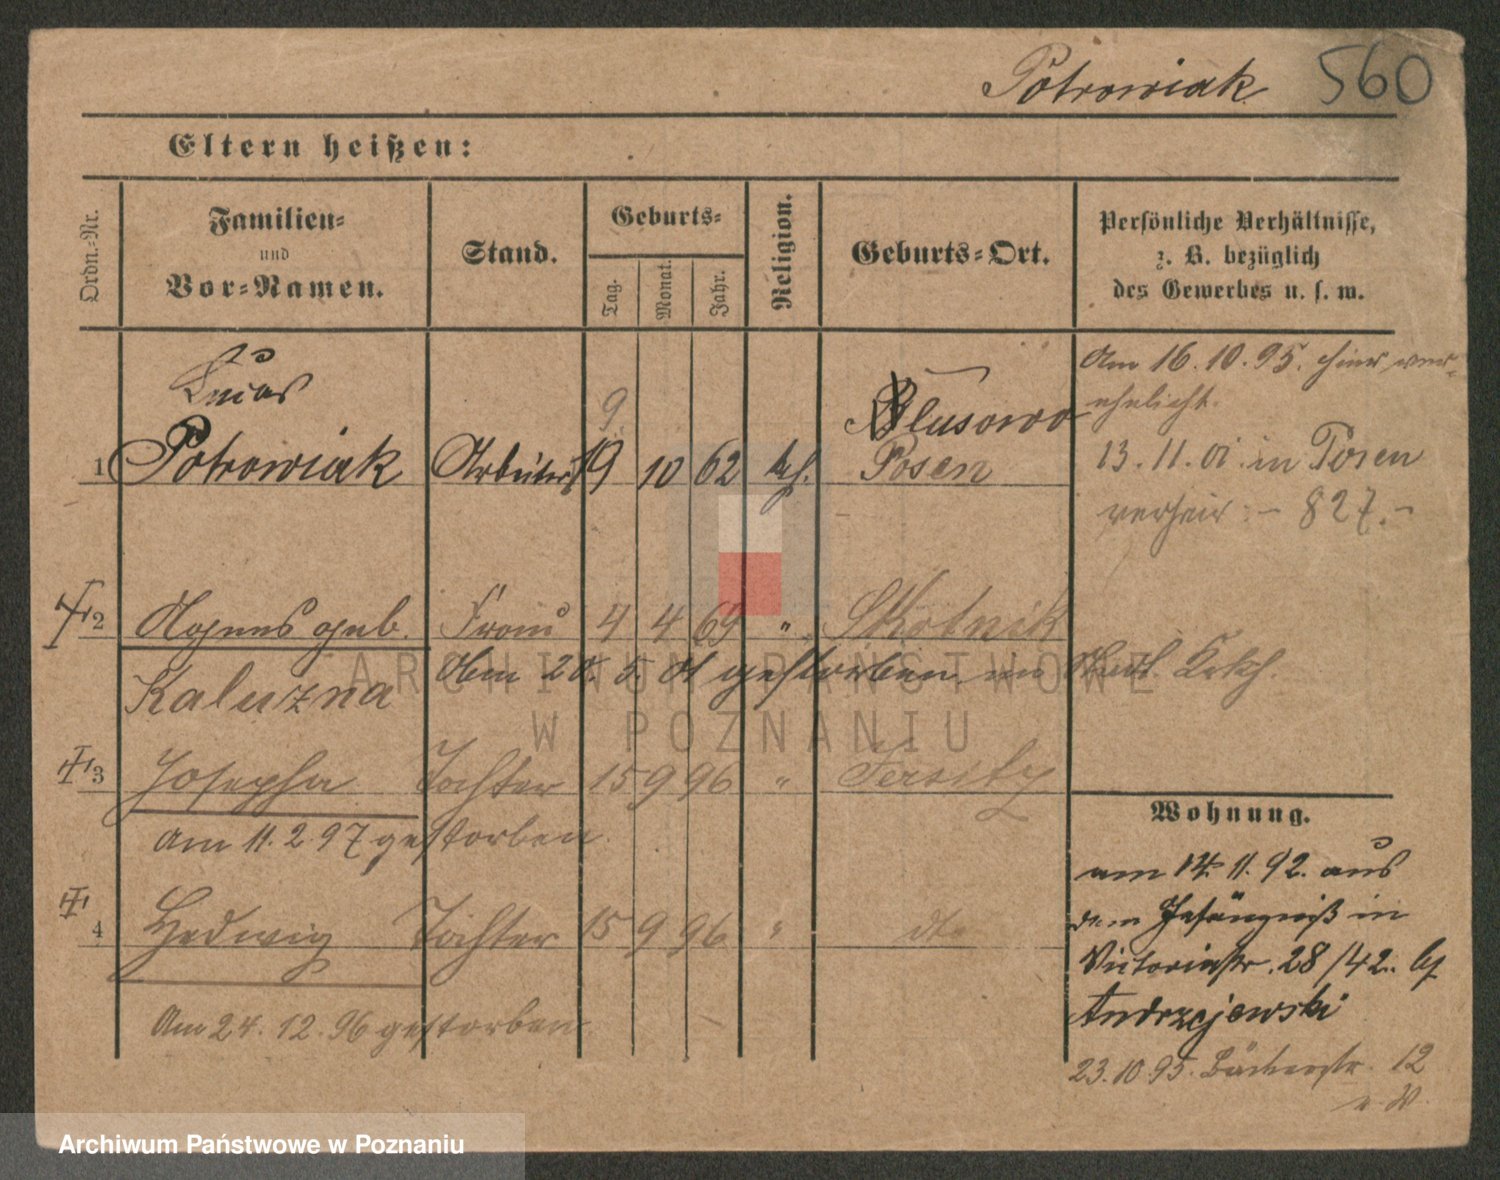 Potrowiak 560
Eltern heißen:
Ordn.=Nr.
Familien=
und
Vor=Namen.
Stand.
Geburts=
Tag.
Monat.
Jahr.
Religion.
Geburts=Ort.
Persönliche Verhältnisse,
z. B. bezüglich
des Gewerbes u. s. w.
Lucas
1 Potrowiak Arbeiter 19 10 62 kth. Posen
9
Am 16.10.95. hier ver-
ehelicht.
13.11.01. in Posen
verheir. - 827.-
2 Agnes geb. Frau 4 4 69 " Skotnik
Kaluzna
Am 20. 5. 01 gestorben im
3 Josepha Tochter 15 9 96 " Jersitz
Am 11.2.97 gestorben.
4 Hedwig Tochter 15 9 96 " dto
Am 24.12.96 gestorben.
Wohnung.
am 14.11.92. aus
dem Gefängniß in
Victoriastr. 28/42. bf
Andrzejewski
23.10.95. Bäckerstr. 12
ARCHIWUM PAŃSTWOWE
W POZNANIU
Archiwum Państwowe w Poznaniu